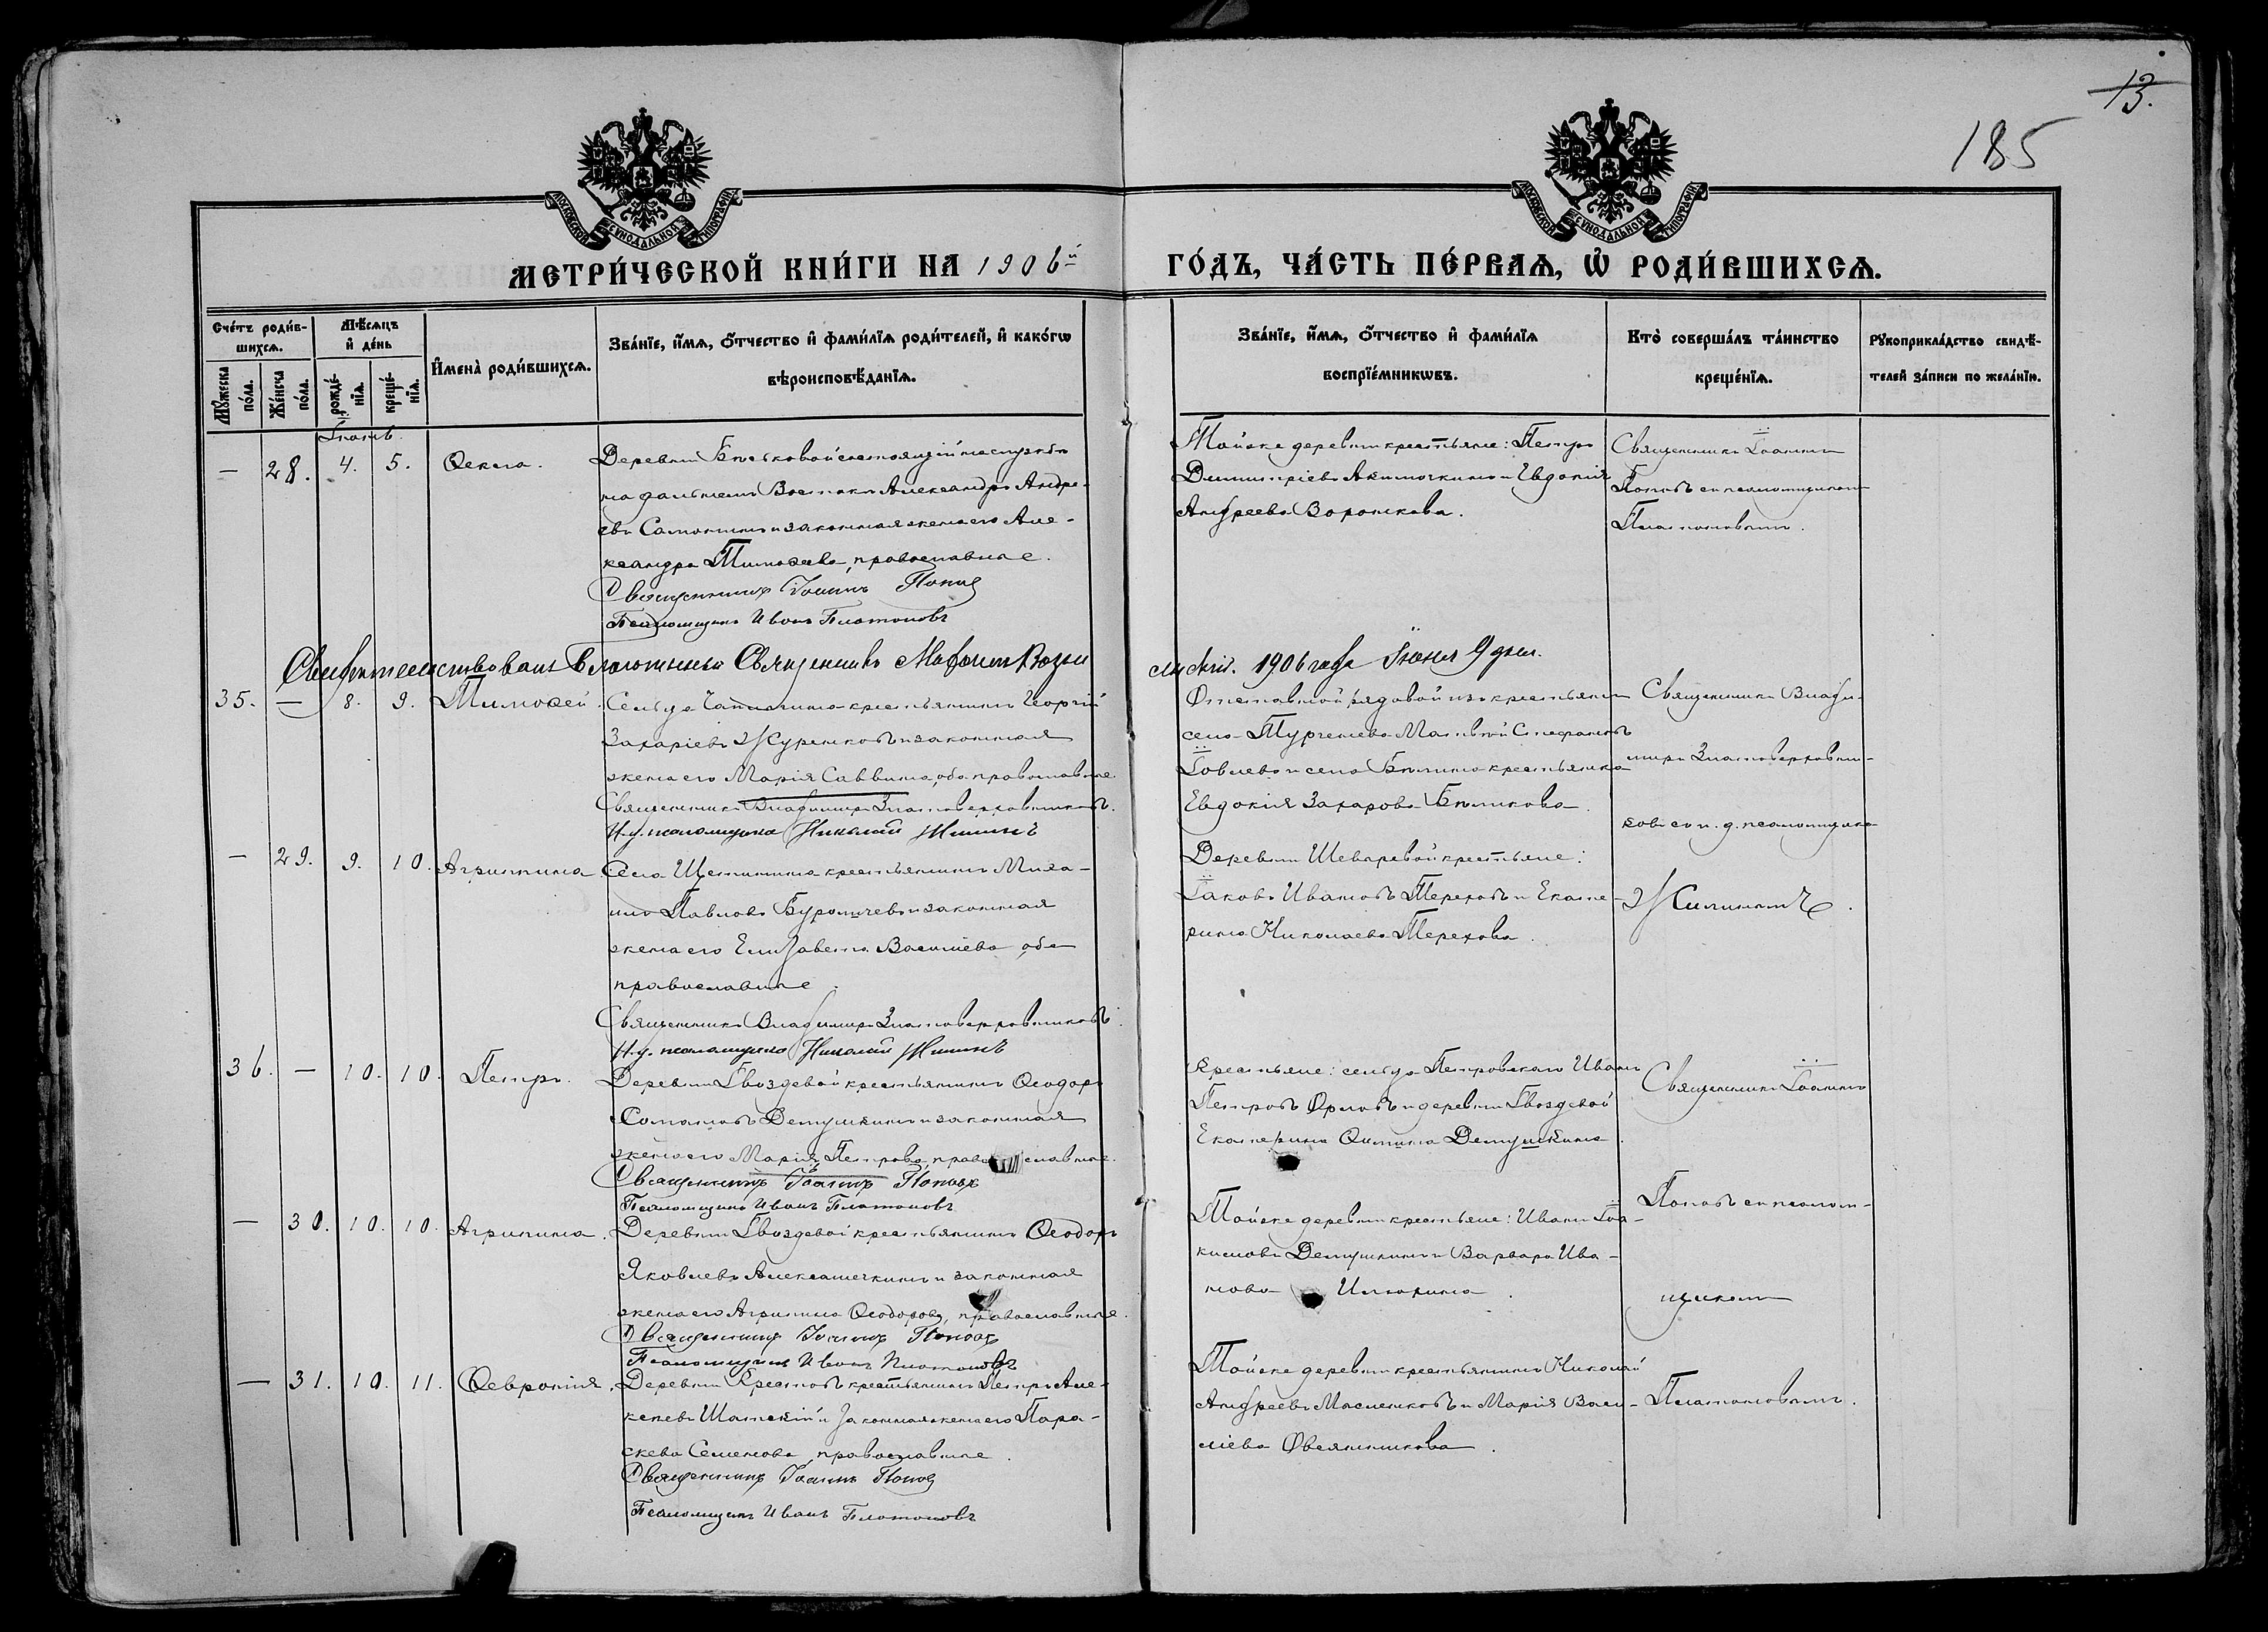 13.
185
МОСКОВСКОЙ СѴНОДАЛЬНОЙ ТИПОГРАФІИ
МОСКОВСКОЙ СѴНОДАЛЬНОЙ ТИПОГРАФІИ
МЕТРИ́ЧЕСКОЙ КНИ́ГИ НА 1906й
ГО́ДЪ, ЧА́СТЬ ПЕ́РВАѦ, Ѿ РОДИ́ВШИХСѦ.
Сче́тъ роди́вшихсѧ.
Мѣ́сѧцъ и҆ де́нь
И҆мена̀ роди́вшихсѧ.
Зва́нїе, и҆́мѧ, ѻ҆́тчество и҆ фами́лїѧ роди́телей, и҆ како́гѡ
вѣроисповѣ́данїѧ.
Зва́нїе, и҆́мѧ, ѻ҆́тчество и҆ фами́лїѧ
воспрїе́мникѡвъ.
Кто̀ соверша́лъ та́инство
креще́нїѧ.
Рꙋкоприкла́дство свидѣ́-
телей за́писи по жела́нїю.
Мꙋ́жеска по́ла.
Же́нска по́ла.
рожде́нїѧ.
креще́нїѧ.
Іюнь.
— 28. 4. 5. Ѳекла.
Деревни состоящій на службѣ
на дальнемъ Востокѣ Александръ Андре-
евъ Самохинъ и законная жена его Але-
ксандра Тимоѳеева, православные.
Священникъ Іоаннъ Поповъ
Псаломщикъ Иванъ Платоновъ
Тойже деревни крестьяне: Петръ
Димитріевъ Акимочкинъ и Евдокія
Андреева Воронкова.
Священникъ Іоаннъ
Поповъ съ псаломщикомъ
Платоновымъ.
Свидѣтельствовалъ Благочинный Священникъ
1906 года Іюня 9 дня.
35. — 8. 9. Тимоѳей.
Сельца крестьянинъ Георгій
Захаріевъ Журенковъ и законная
жена его Марія Саввина, оба православные.
Священникъ Владимиръ Златоверховниковъ.
И. д. псаломщика Николай Жилинъ
Отставной рядовой изъ крестьянъ
села Тургенева Матвѣй Стефановъ
Іовлевъ и села крестьянка
Евдокія Захарова Бѣликова.
Священникъ Влади-
миръ Златоверховни-
ковъ съ и. д. псаломщика
Жилинымъ.
— 29. 9. 10. Агрипина
Села Щетинина крестьянинъ Миха-
илъ Павловъ Бурмичевъ и законная
жена его Елизавета Васильева, оба
православные.
Священникъ Владимиръ Златоверховниковъ.
И. д. псаломщика Николай Жилинъ
Деревни Шеваревой крестьяне:
Іаковъ Ивановъ Тереховъ и Екате-
рина Николаева Терехова.
36. — 10. 10. Петръ.
Деревни Гвоздевой крестьянинъ Ѳеодоръ
Детушкинъ и законная
жена его Марія Петрова, православные.
Священникъ Іоаннъ Поповъ
Псаломщикъ Иванъ Платоновъ
Крестьяне: сельца Петровскаго Иванъ
Петровъ Орловъ и деревни Гвоздевой
Екатерина Детушкина.
Священникъ Іоаннъ
Поповъ съ псалом-
щикомъ
Платоновымъ.
— 30. 10. 10. Агрипина.
Деревни Гвоздевой крестьянинъ Ѳеодоръ
Яковлевъ Алексашечкинъ и законная
жена его Агрипина Ѳеодорова, православные.
Священникъ Іоаннъ Поповъ
Псаломщикъ Иванъ Платоновъ
Тойже деревни крестьяне: Иванъ Іоа-
кимовъ Детушкинъ и Варвара Ива-
нова Илюхина.
— 31. 10. 11. Ѳевронія.
Деревни Крестовъ крестьянинъ Петръ Але-
ксѣевъ Шатскій и законная жена его Пара-
скева Семенова, православные.
Священникъ Іоаннъ Поповъ
Псаломщикъ Иванъ Платоновъ
Тойже деревни крестьянинъ Николай
Андреевъ Масленковъ и Марія Васи-
ліева Овсянникова.